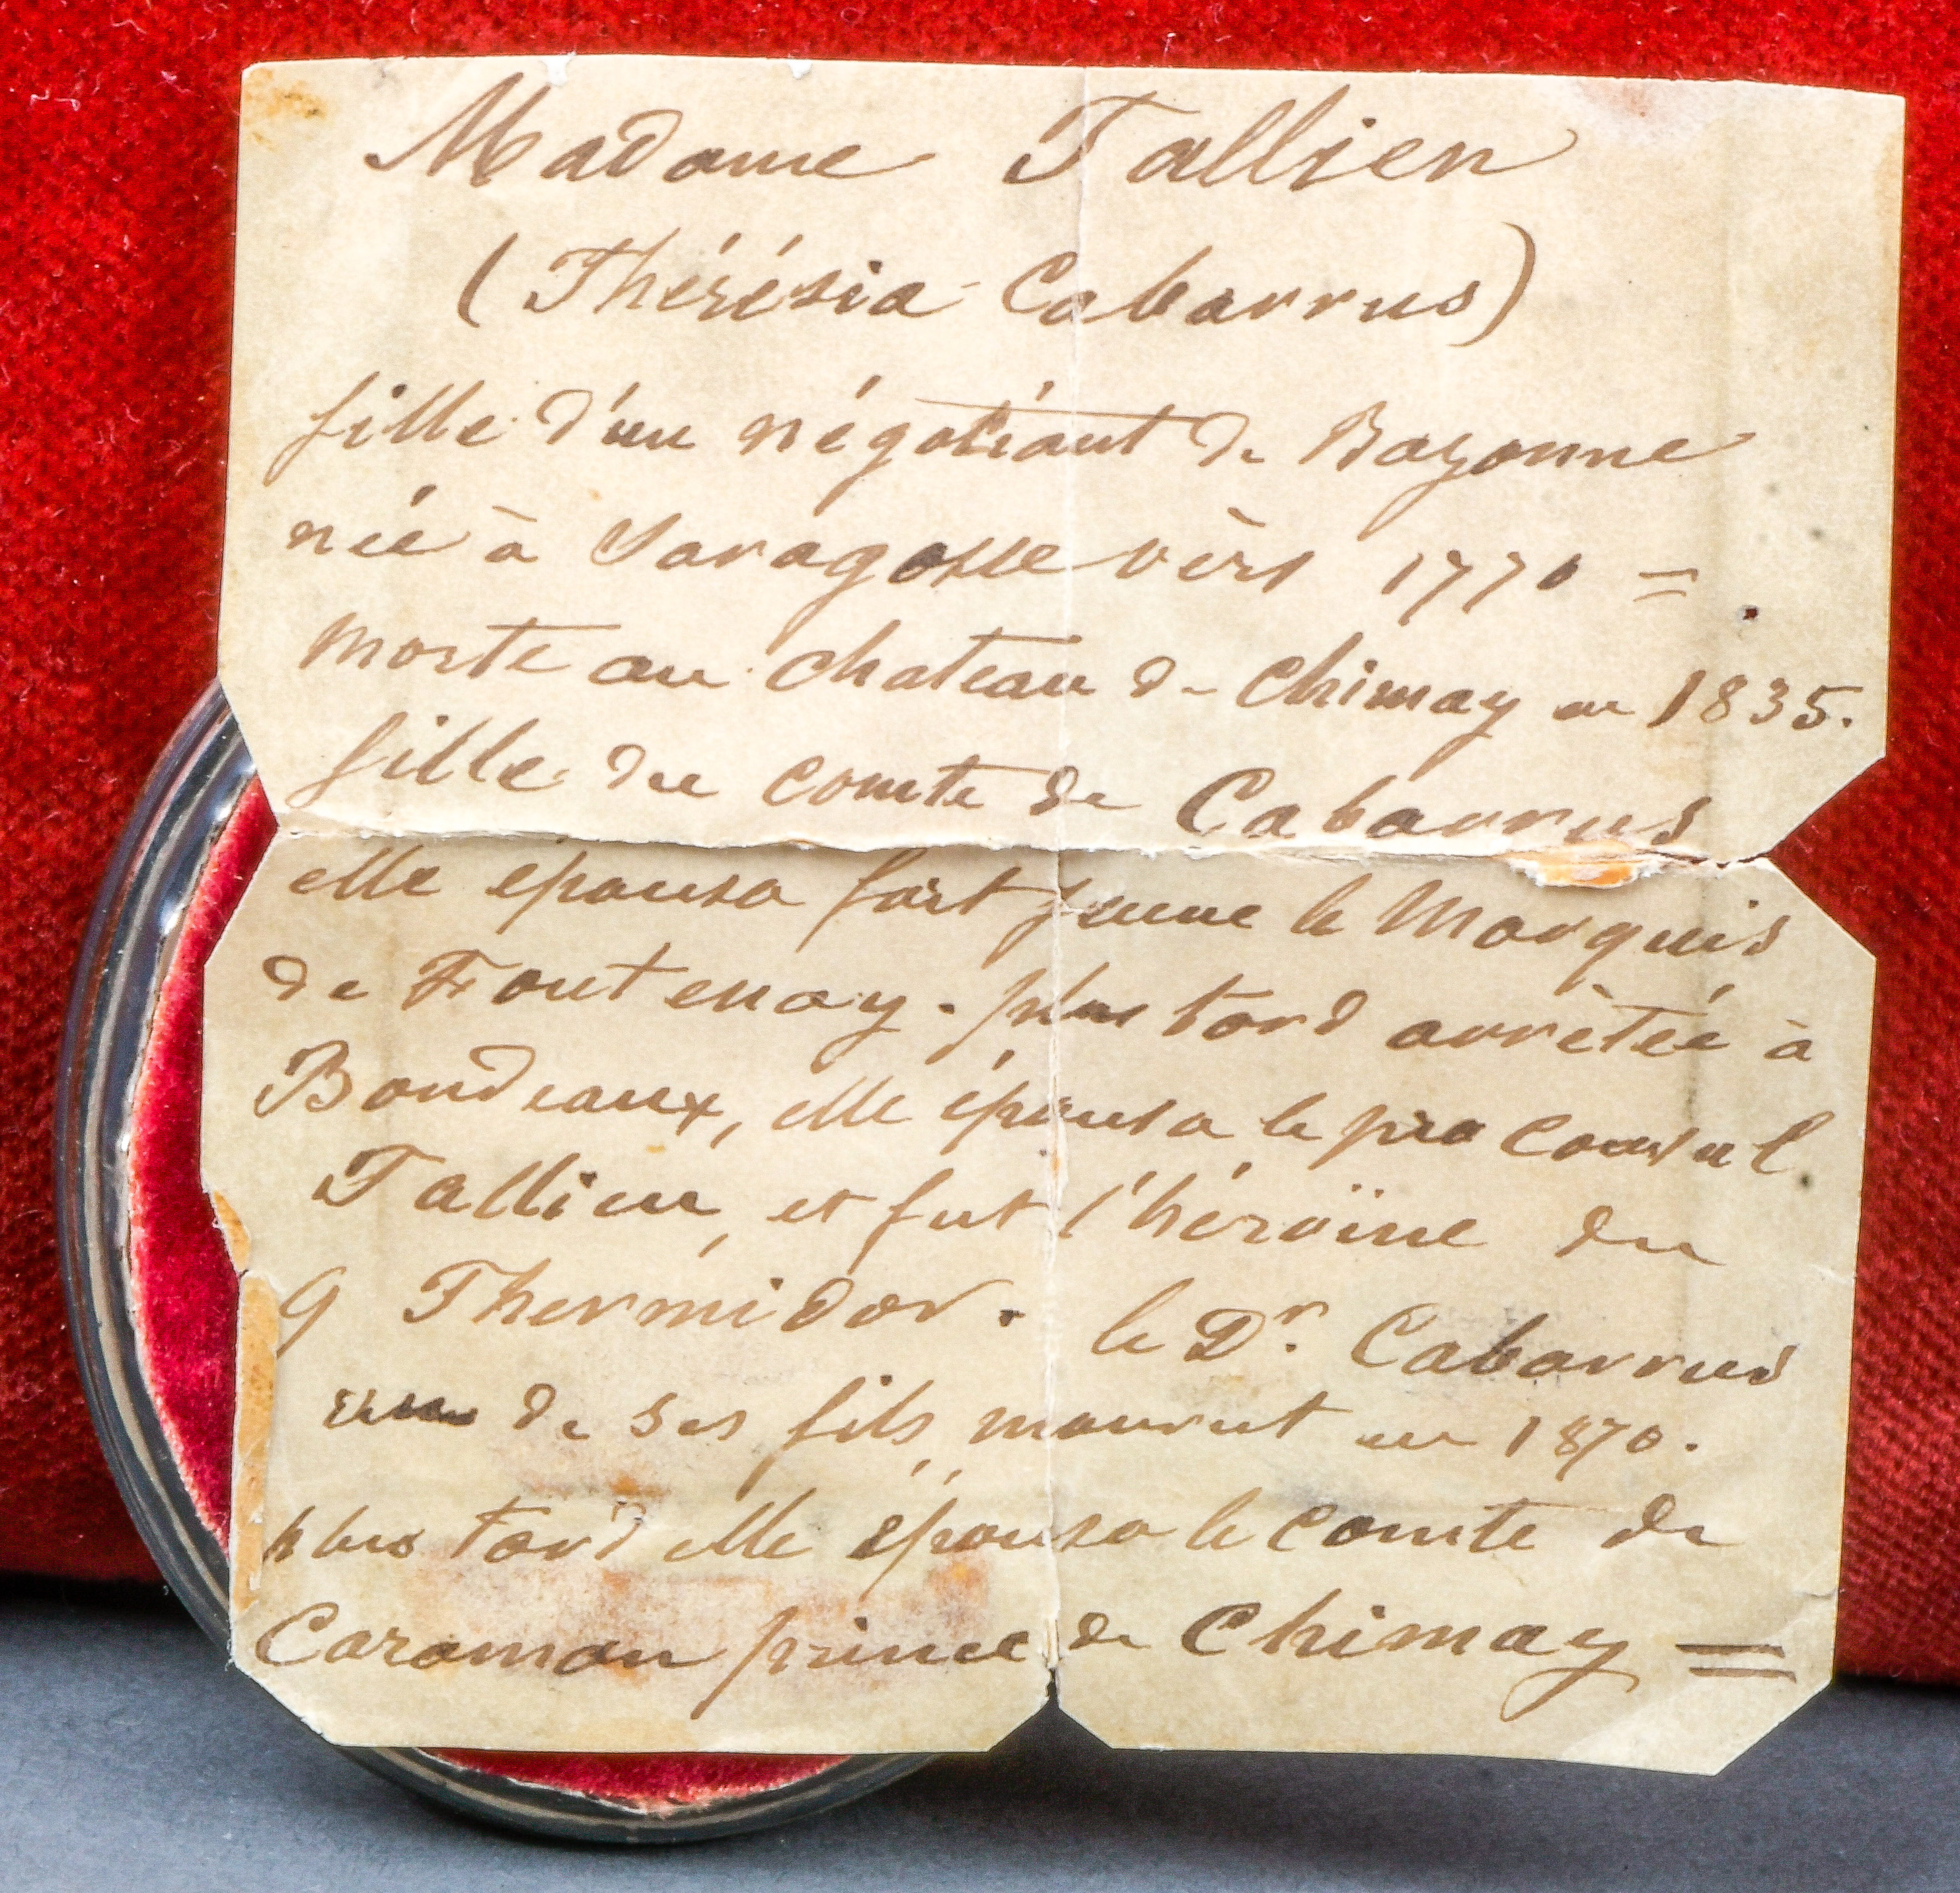 Madame Tallien
(Thérésia Cabarrus)
fille d'un négotiant de Bayonne
née à Saragosse vèrs 1770 =
morte au chateau de Chimay en 1835.
fille du comte de Cabarrus
elle épousa fort jeune le Marquis
de Fontenay. plus tard arrètée à
Bordeaux, elle épousa le pro consul
Tallien, et fut l'héroïne du
9 Thermidor. le Dr. Cabarrus
un de ses fils, mourut en 1870.
plus tard elle épousa le comte de
Caraman prince de Chimay =